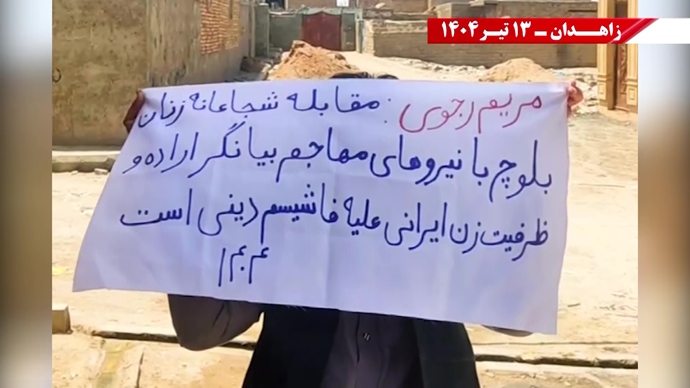 زاهدان - ۱۳ تیر ۱۴۰۴
مریم رجوی: مقابله شجاعانه زنان
بلوچ با نیروهای مهاجم بیانگر اراده و
ظرفیت زن ایرانی علیه فاشیسم دینی است